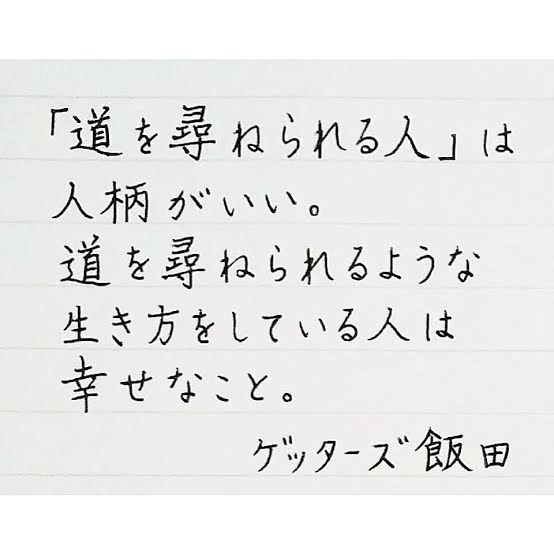 「道を尋ねられる人」は
人柄がいい。
道を尋ねられるような
生き方をしている人は
幸せなこと。
ゲッターズ飯田